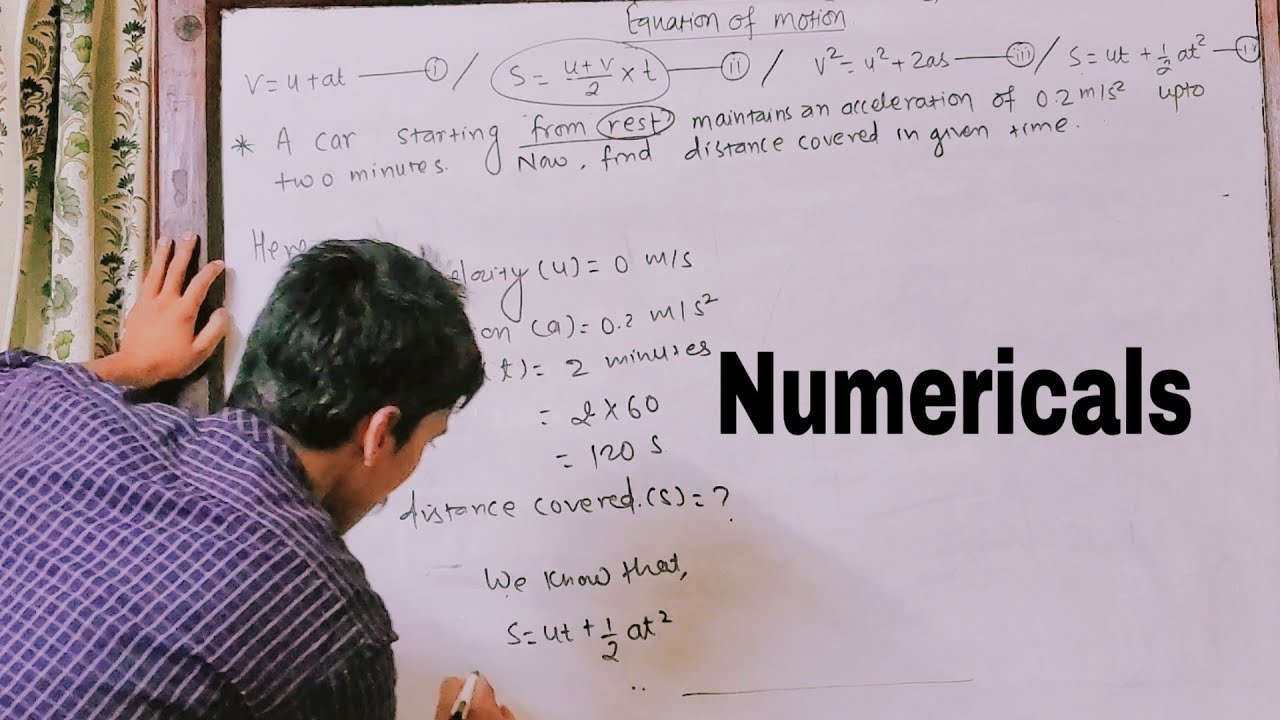 Equation of motion
V = u + at —— (i) / S = u+v/2 × t —— (ii) / v² = u² + 2as —— (iii) / S = ut + 1/2 at² —— (iv)
* A car starting from rest maintains an acceleration of 0.2 m/s² upto
two minutes. Now, find distance covered in given time.
Here
(u) = 0 m/s
(a) = 0.2 m/s²
t) = 2 minutes
= 2 × 60
= 120 s
Numericals
distance covered.(s) = ?
We know that,
S = ut + 1/2 at²